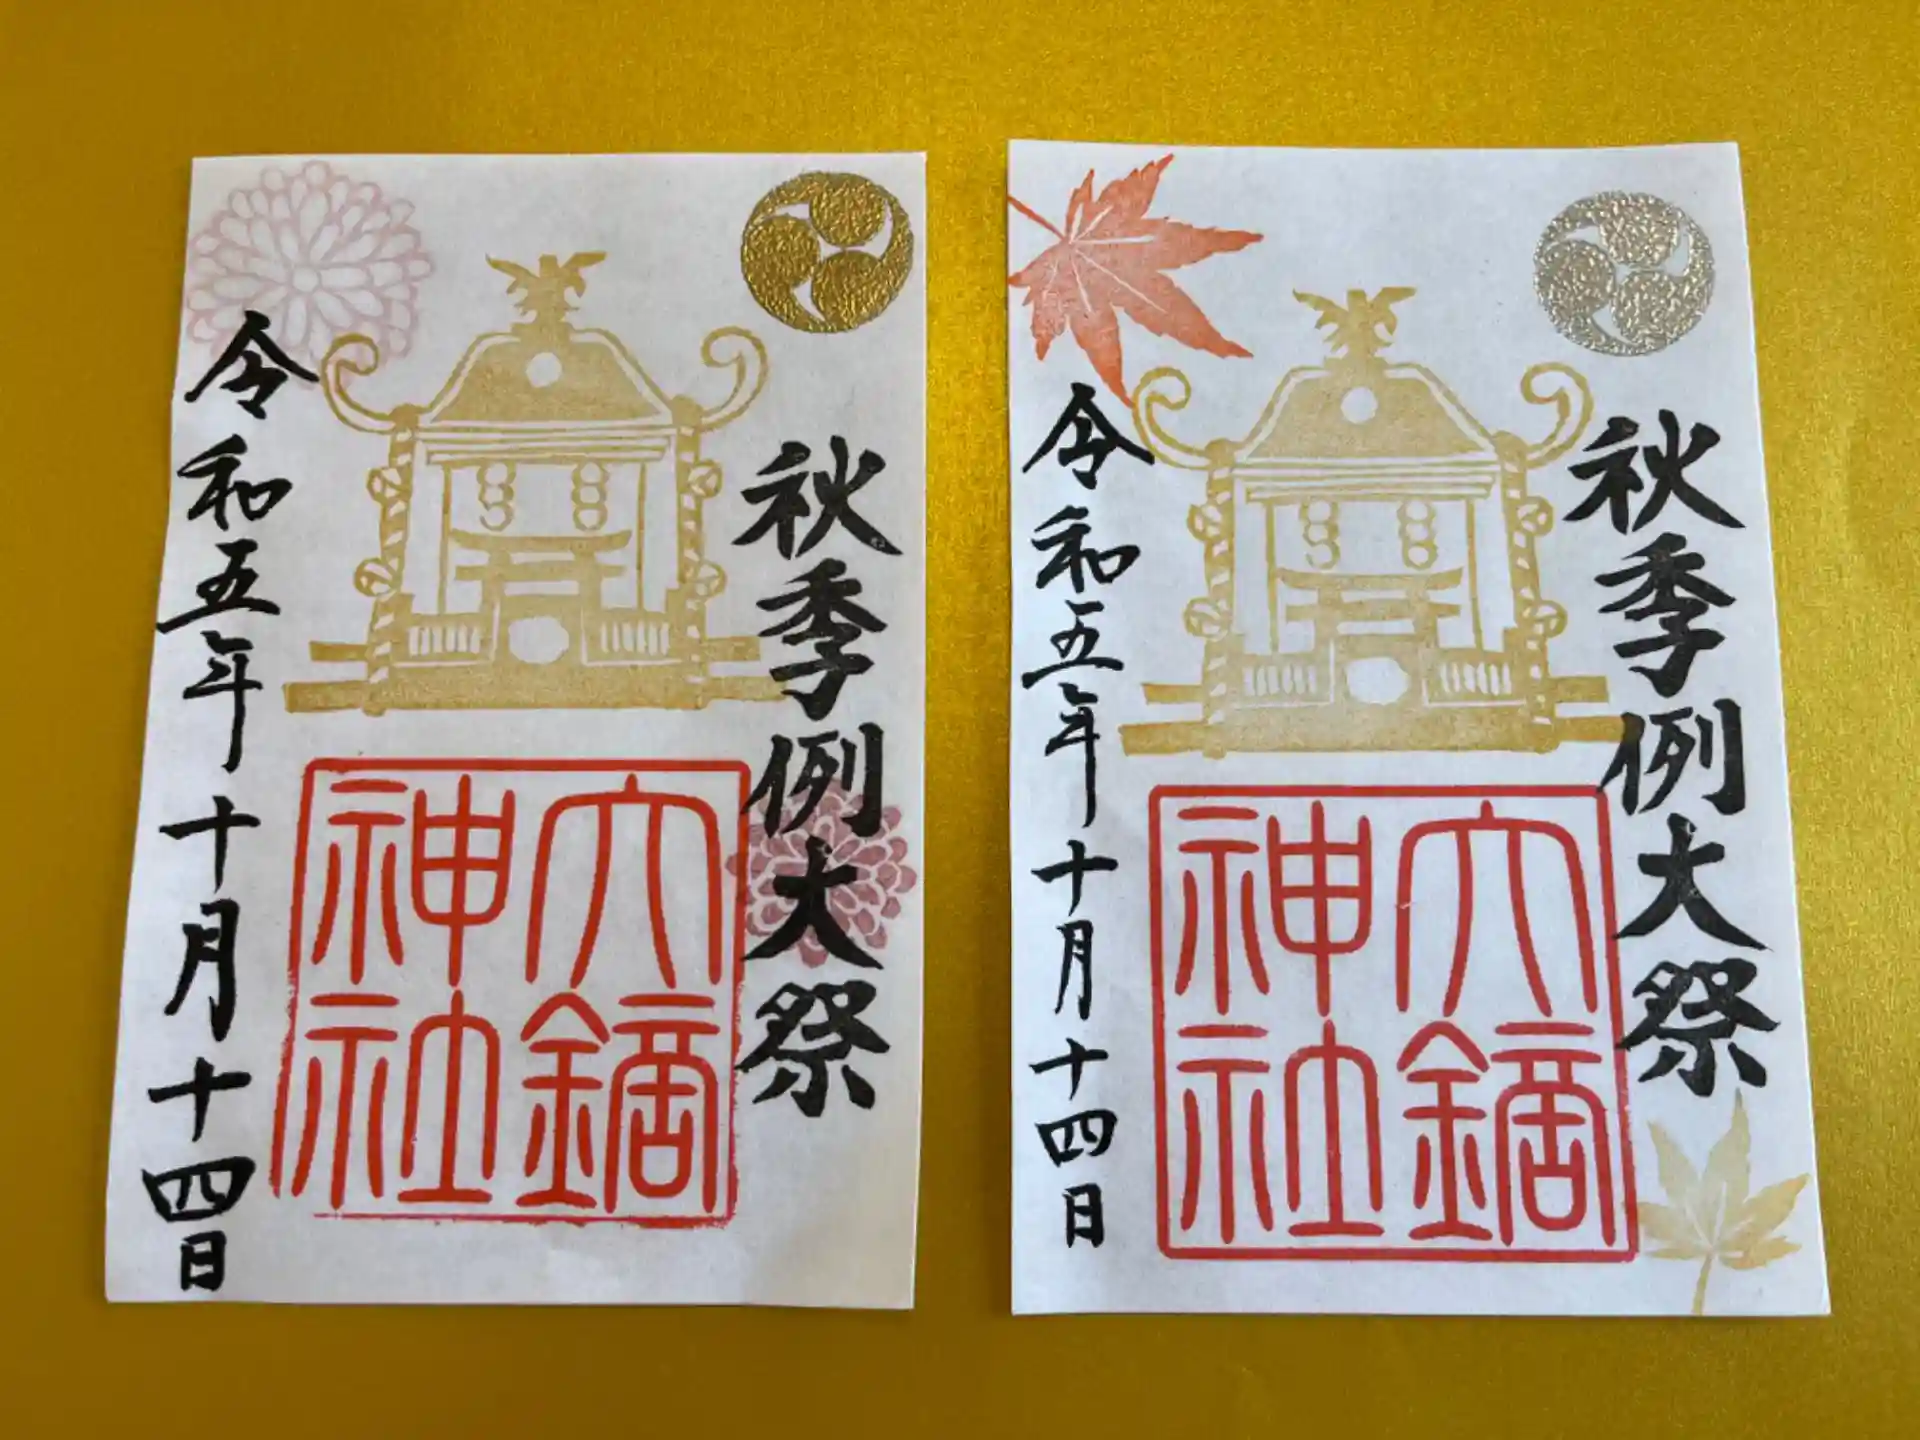 秋季例大祭
六鏑
神社
令和五年十月十四日
秋季例大祭
六鏑
神社
令和五年十月十四日